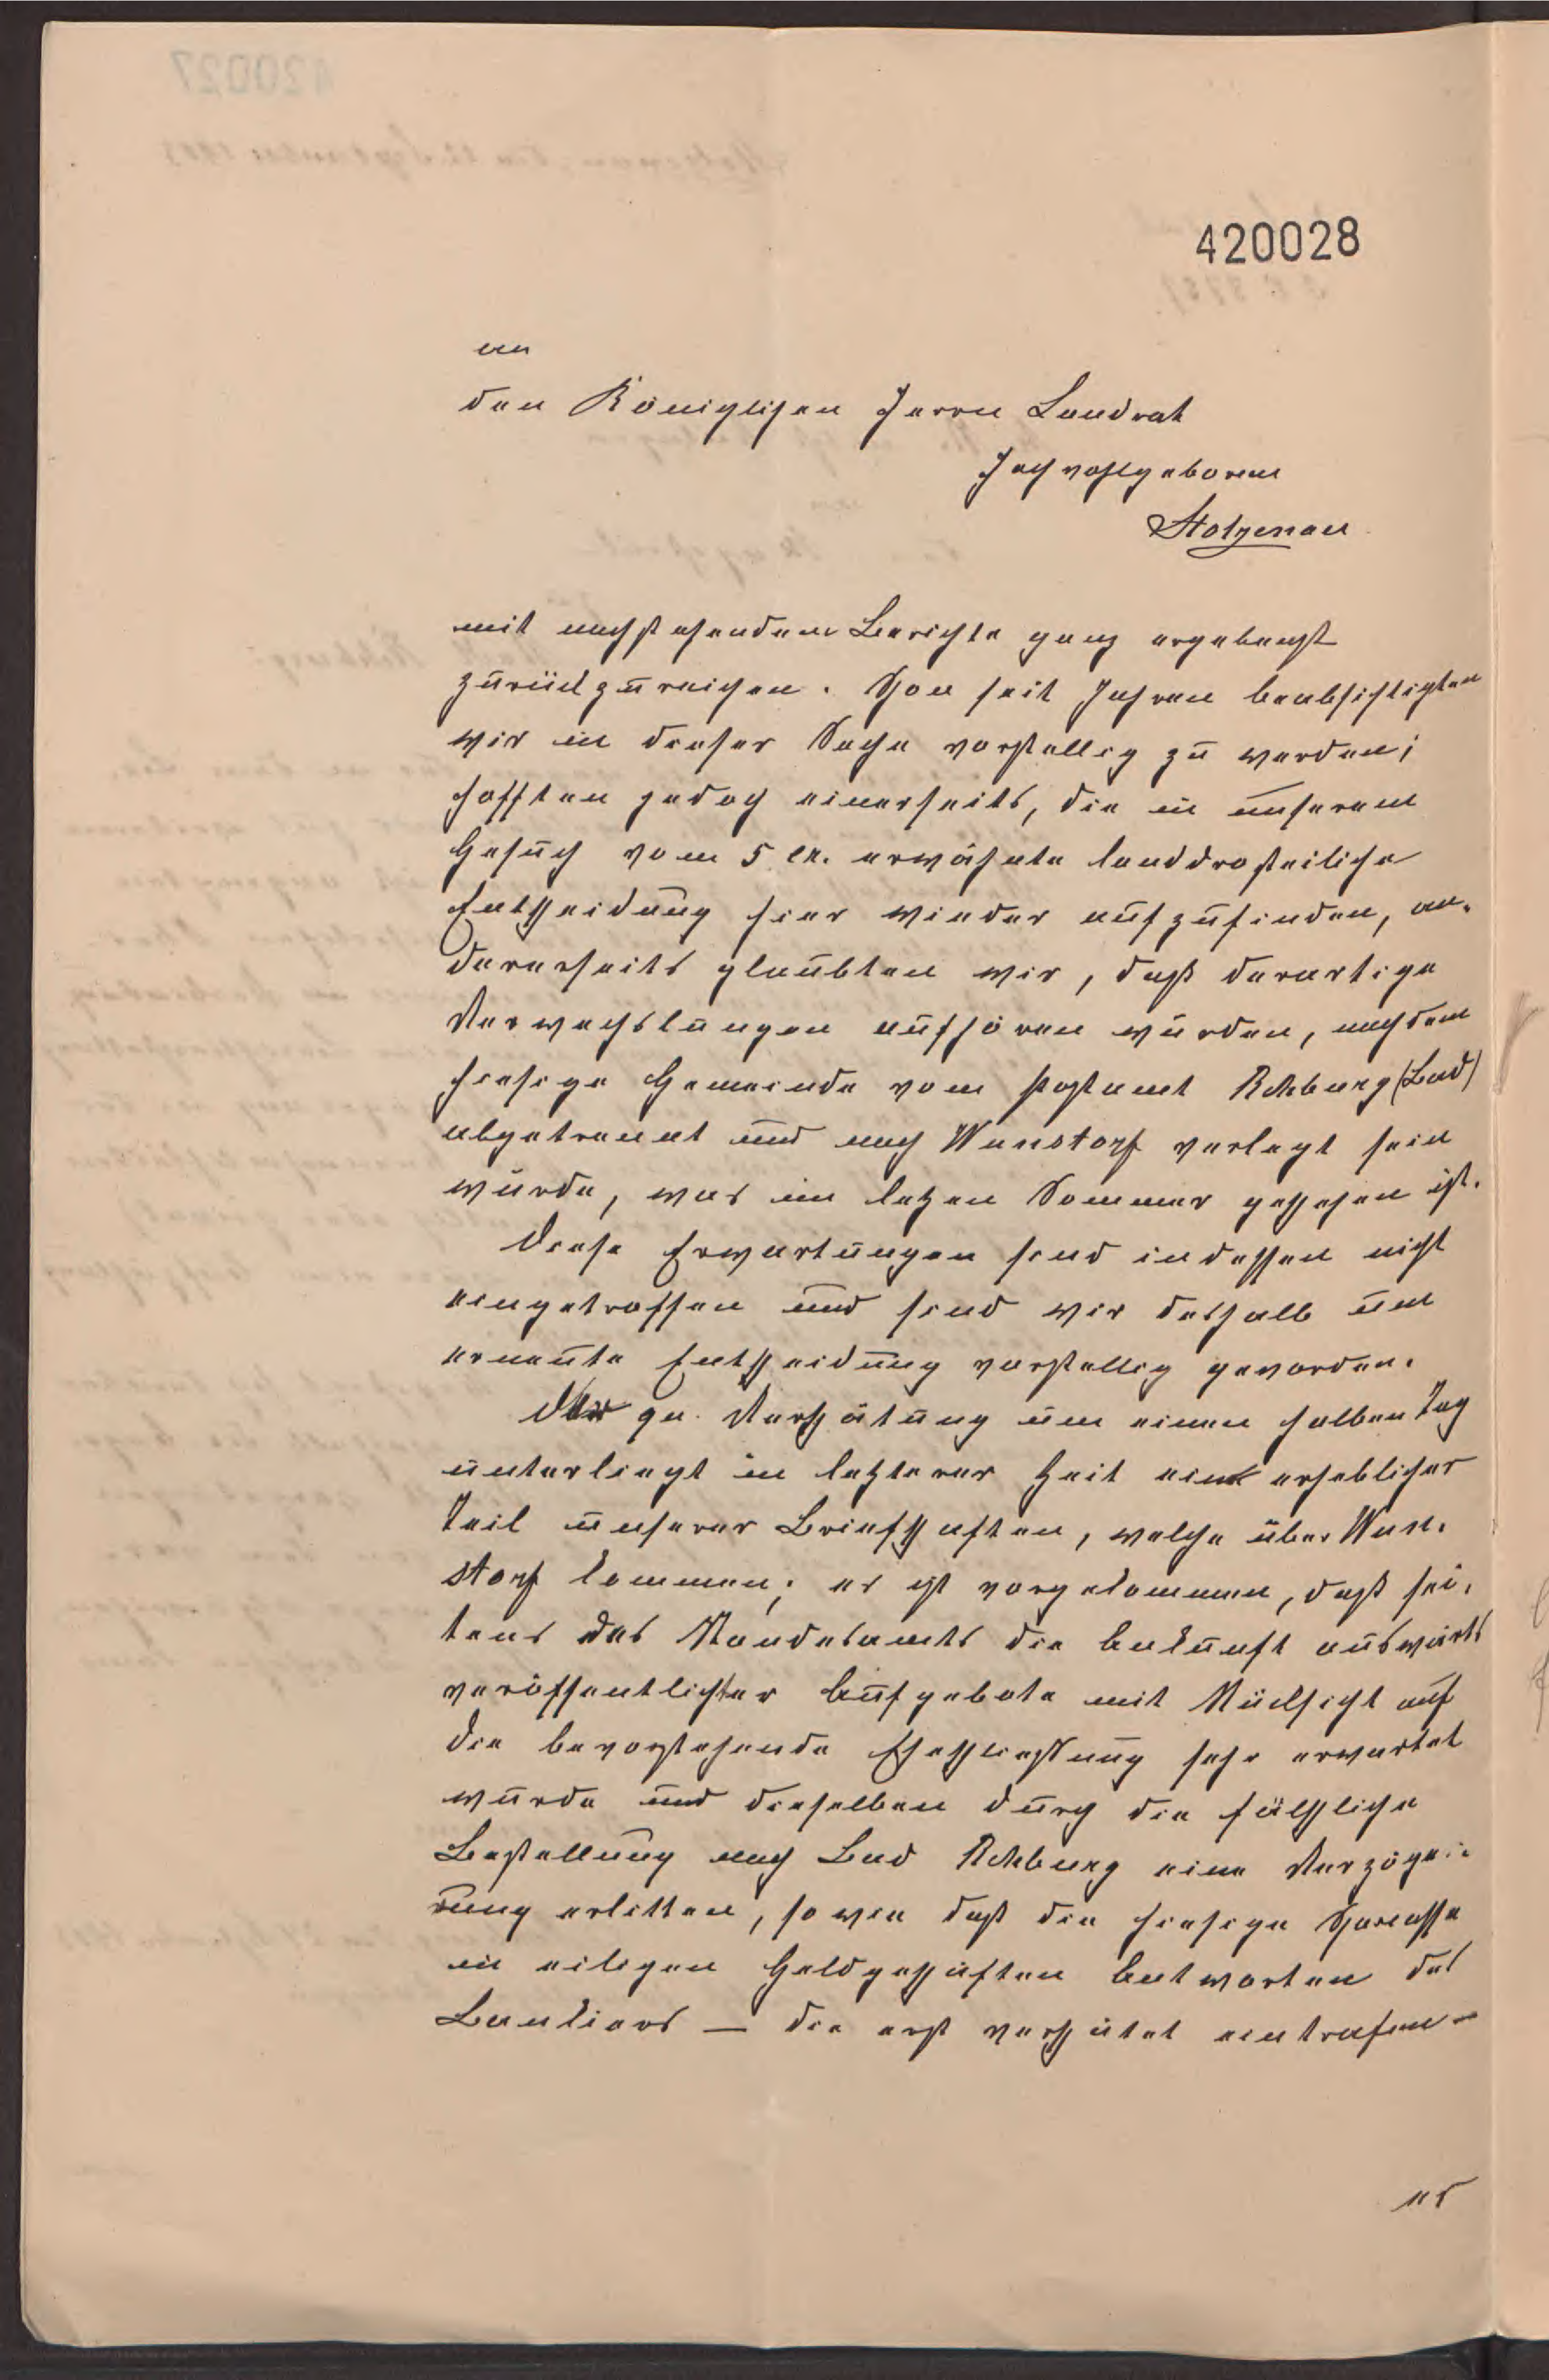 420028
an
den Königlichen Herrn Landrat
Hochwohlgeboren
Stolzenau
mit nachstehendem Berichte ganz ergebenst
zurückzureichen. Schon seit Jahren beabsichtigten
wir in dieser Sache vorstellig zu werden;
hofften jedoch einerseits, die in unserem
Gesuch vom 5. cr. erwähnte landdrosteiliche
Entscheidung hier wieder aufzufinden, an-
dererseits glaubten wir, daß derartige
Verwechslungen aufhören würden, nachdem
hiesige Gemeinde vom Postamt Rehburg (Bad)
abgetrennt und nach Wunstorf verlegt sein
würde, was im letzen Sommer geschehen ist.
Diese Erwartungen sind indessen nicht
eingetroffen und sind wir deshalb um
erneute Entscheidung vorstellig geworden.
Der qu. Verspätung um einen halben Tag
unterliegt in letzterer Zeit ein erheblicher
Teil unserer Briefschaften, welche über Wun-
storf kommen; es ist vorgekommen, daß sei-
tens des Standesamts die Ankunft auswärts
veröffentlichter Aufgebote mit Rücksicht auf
die bevorstehende Eheschließung sehr erwartet
wurde und dieselben durch die fälschliche
Bestellung nach Bad Rehburg eine Verzöge-
rung erlitten, sowie daß die hiesige Sparcasse
in eiligen Geldgeschäften Antworten des
Bankiers — die erst verspätet eintrafen —
es